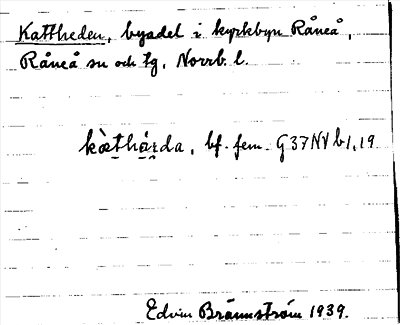 Kattheden, byadel i kyrkbyn Råneå,
Råneå sn och tg, Norrb. l.
bf. fem. G37NVb1,19
Edvin Brännström 1939.